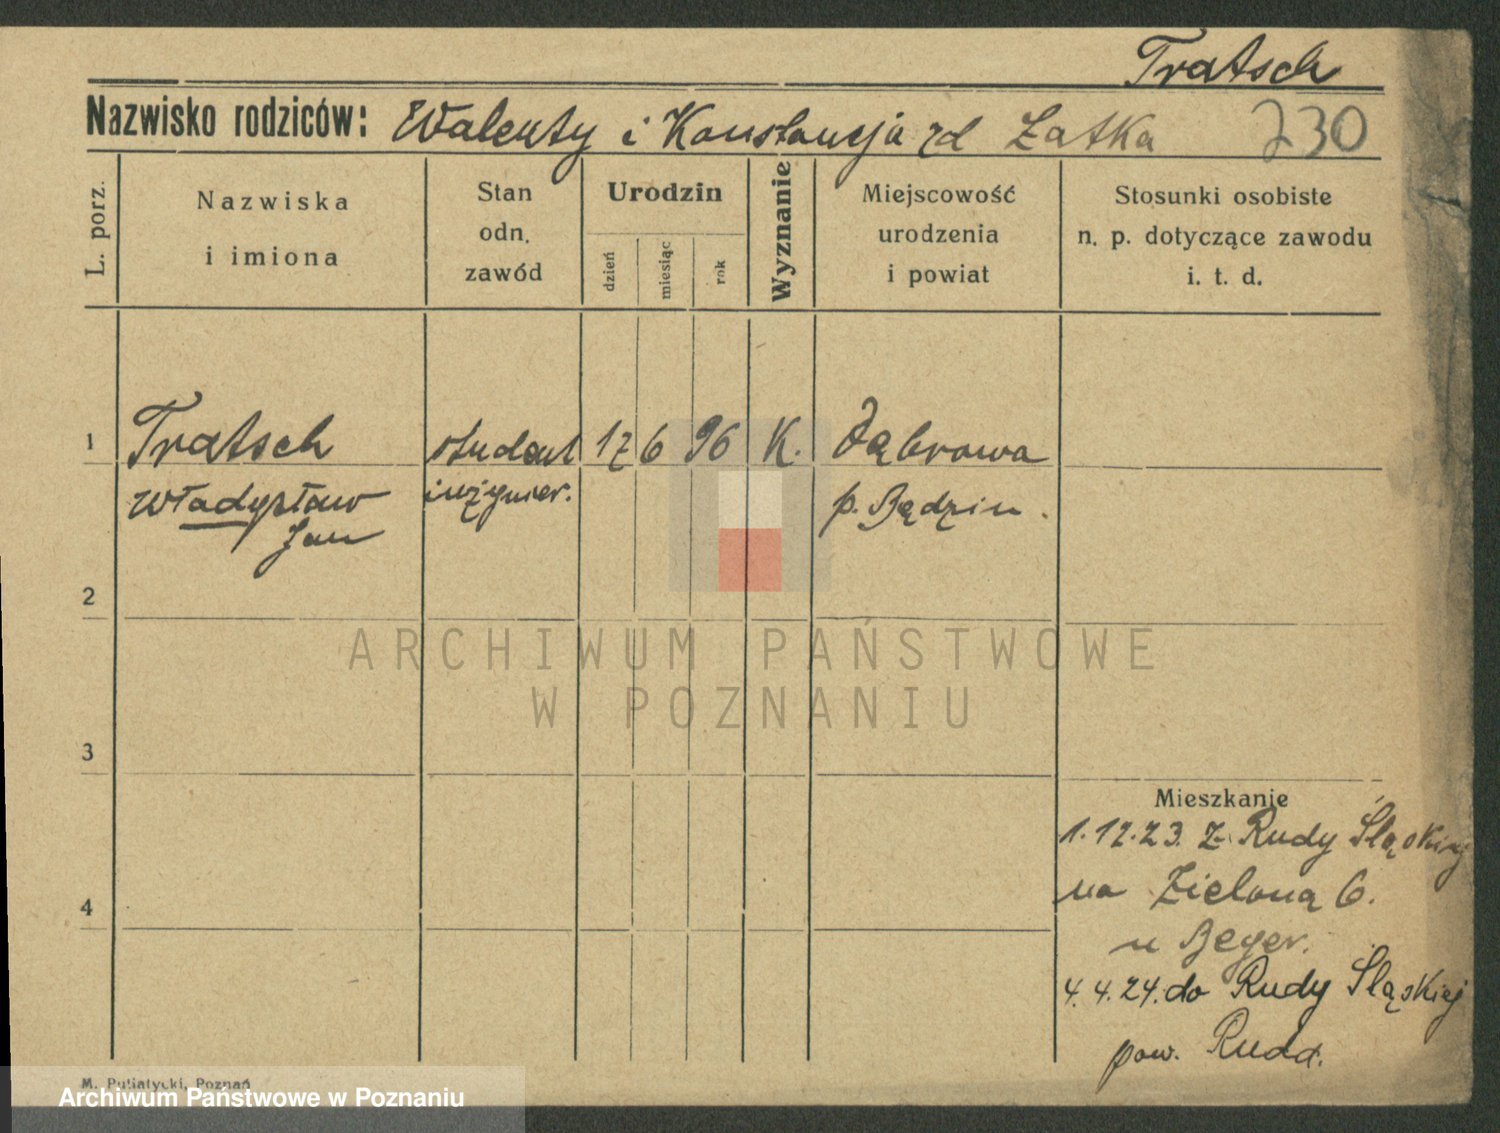 Tratsch
Nazwisko rodziców: Walenty i Konstancja zd Łatka 730
L. porz.
Nazwiska
i imiona
Stan
odn.
zawód
Urodzin
dzień
miesiąc
rok
Wyznanie
Miejscowość
urodzenia
i powiat
Stosunki osobiste
n. p. dotyczące zawodu
i. t. d.
1 Tratsch student 17 6 96 K. Dąbrowa
Władysław inżynier. p. Będzin.
Jan
2
3
4
Mieszkanie
1.12.23. z Rudy Śląskiej
na Zieloną 6.
u Beyer.
4.4.24. do Rudy Śląskiej
pow. Ruda.
M. Putiatycki, Poznań
ARCHIWUM PAŃSTWOWE
W POZNANIU
Archiwum Państwowe w Poznaniu